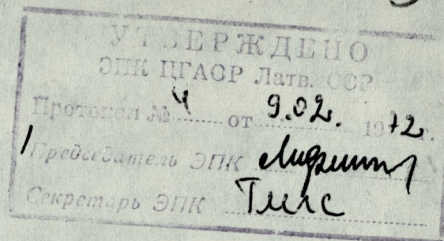 УТВЕРЖДЕНО
ЭПК ЦГАОР Латв. ССР
Протокол № 4 от 9.02. 1972.
Председатель ЭПК
Секретарь ЭПК